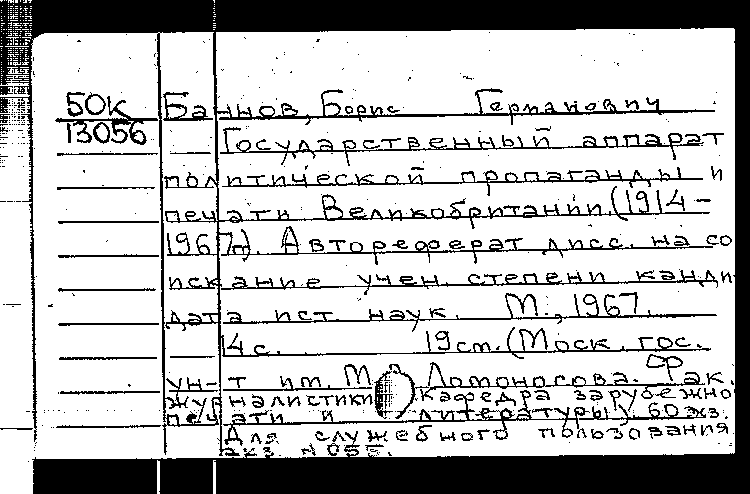 50к Баннов, Борис Германович
13056 Государственный аппарат
политической пропаганды и
печати Великобритании. (1914-
1967гг). Автореферат дисс. на со
искание учен. степени канди-
дата ист. наук. М., 1967.
14 с. 19 см. (Моск. гос.
ун-т им. М. Ломоносова. Фак.
журналистики кафедра зарубежно
печати и литературы). 60 экз.
Для служебного пользования
экз. N 055.